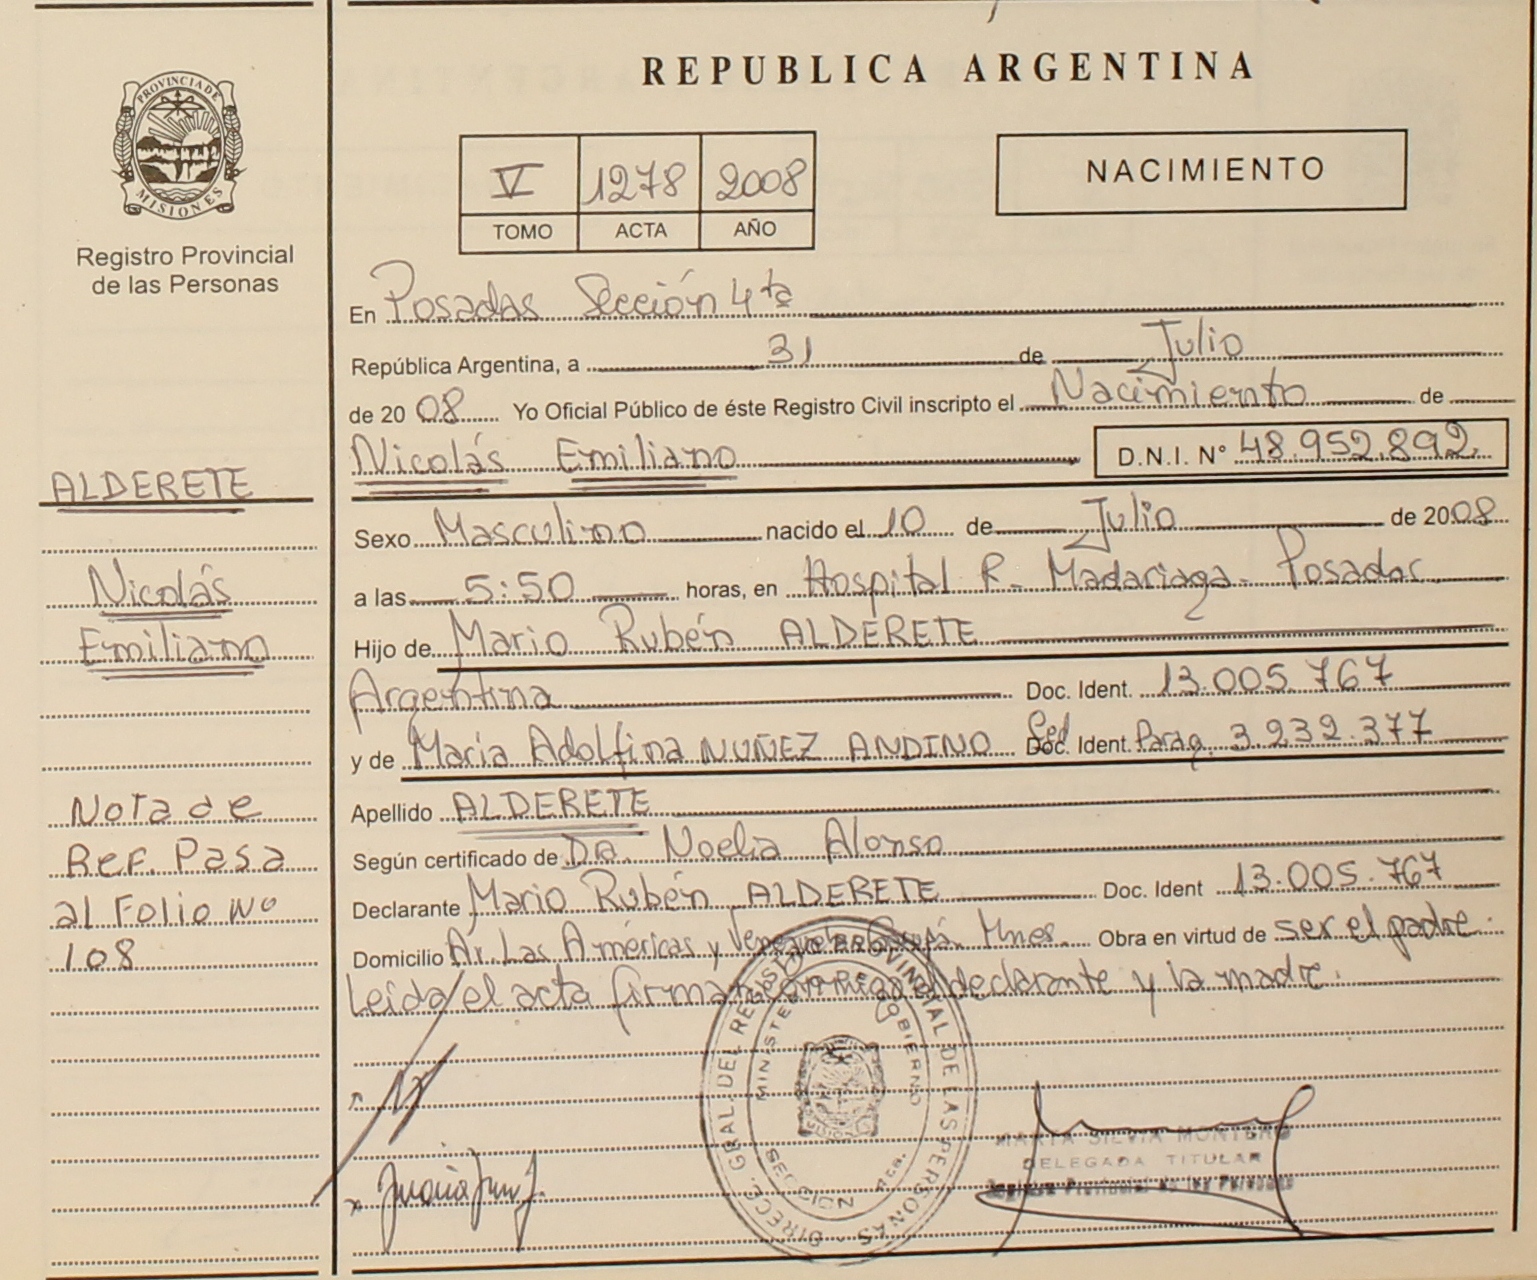 PROVINCIA DE
MISIONES
Registro Provincial
de las Personas
ALDERETE
Nicolás
Emiliano
Nota de
Ref. Pasa
al Folio Nº
108
REPUBLICA ARGENTINA
V 1278 2008
TOMO ACTA AÑO
NACIMIENTO
En Posadas Sección 4ta
República Argentina, a 31 de Julio
de 2008 Yo Oficial Público de éste Registro Civil inscripto el Nacimiento de
Nicolás Emiliano D.N.I. N° 48.952.892
Sexo Masculino nacido el 10 de Julio de 2008
a las 5:50 horas, en Hospital R. Madariaga - Posadas
Hijo de Mario Rubén ALDERETE
Argentina Doc. Ident. 13.005.767
y de María Adolfina NUÑEZ ANDINO Ced. Doc. Ident. Parag. 3.232.377
Apellido ALDERETE
Según certificado de DRA. Noelia Alonso
Declarante Mario Rubén ALDERETE Doc. Ident 13.005.767
Domicilio Av. Las Américas y Venezuela Garupá. Mnes. Obra en virtud de ser el padre.
Leída el acta firman conmigo el declarante y la madre.
DIRECC. GRAL. DEL REGISTRO PROVINCIAL DE LAS PERSONAS
MINISTERIO DE GOBIERNO
SECCION 4ta.
MISIONES
MARTA SILVIA MONTERO
DELEGADA TITULAR
Registro Provincial de las Personas